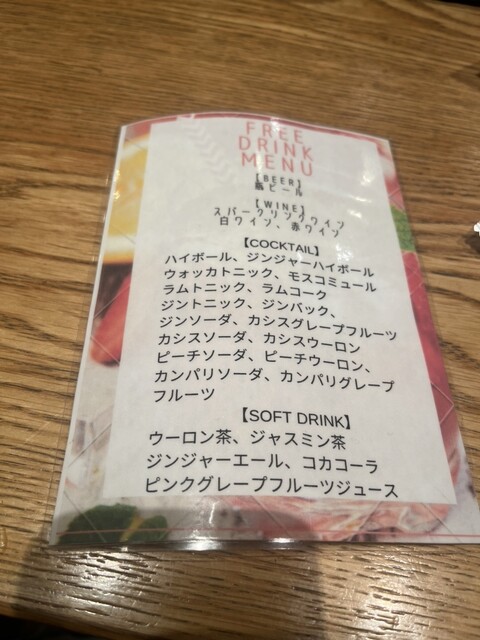 FREE
DRINK
MENU
【BEER】
瓶ビール
【WINE】
スパークリングワイン
白ワイン、赤ワイン
【COCKTAIL】
ハイボール、ジンジャーハイボール
ウォッカトニック、モスコミュール
ラムトニック、ラムコーク
ジントニック、ジンバック、
ジンソーダ、カシスグレープフルーツ
カシスソーダ、カシスウーロン
ピーチソーダ、ピーチウーロン、
カンパリソーダ、カンパリグレープ
フルーツ
【SOFT DRINK】
ウーロン茶、ジャスミン茶
ジンジャーエール、コカコーラ
ピンクグレープフルーツジュース